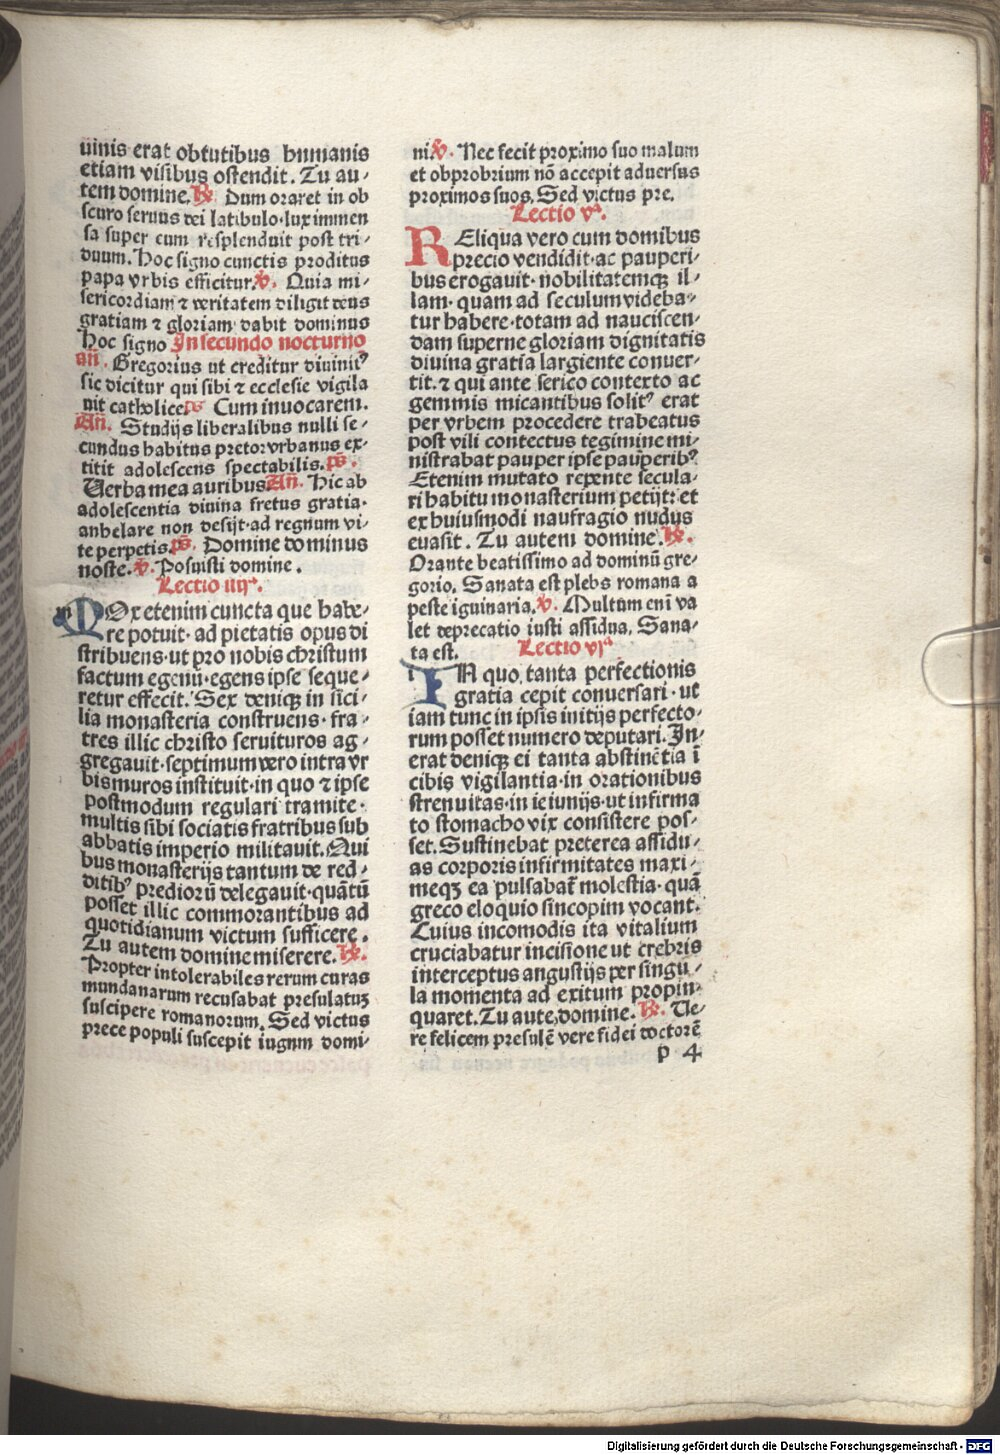 uinis erat obtutibus humanis
etiam visibus ostendit. Tu au⸗
tem domine. ℟ Dum oraret in ob
scuro seruus dei latibulo·lux immen
sa super eum resplenduit post tri⸗
duum. Hoc signo cunctis proditus
papa vrbis efficitur. ℣. Quia mi⸗
sericordiam ⁊ veritatem diligit deus
gratiam ⁊ gloriam dabit dominus
Hoc signo In secundo nocturno
añ. Gregorius ut creditur diuiniꝰ
sic dicitur qui sibi ⁊ ecclesie vigila
uit catholice. p̄s Cum inuocarem.
Añ. Studijs liberalibus nulli se⸗
cundus habitus pretor vrbanus ex⸗
titit adolescens spectabilis. p̄s.
Uerba mea auribus Añ. Hic ab
adolescentia diuina fretus gratia·
anhelare non desijt·ad regnum vi⸗
te perpetis. p̄s. Domine dominus
noste. ℣. Posuisti domine.
Lectio iiijᵃ.
MOx etenim cuncta que habe⸗
re potuit·ad pietatis opus di
stribuens·ut pro nobis christum
factum egenū·egens ipse seque⸗
retur effecit. Sex deniqꝫ in sici⸗
lia monasteria construens·fra⸗
tres illic christo seruituros ag⸗
gregauit·septimum vero intra vr
bis muros instituit·in quo ⁊ ipse
postmodum regulari tramite·
multis sibi sociatis fratribus sub
abbatis imperio militauit. Qui
bus monasterijs tantum de red⸗
ditibꝰ prediorū delegauit·quātū
posset illic commorantibus ad
quotidianum victum sufficere.
Tu autem domine miserere. ℟.
Propter intolerabiles rerum curas
mundanarum recusabat presulatuꝫ
suscipere romanorum. Sed victus
prece populi suscepit iugum domi⸗
ni ℣. Nec fecit proximo suo malum
et obprobrium nō accepit aduersus
proximos suos. Sed victus pre.
Lectio vᵃ.
REliqua vero cum domibus
precio vendidit·ac pauperi⸗
bus erogauit·nobilitatemqꝫ il⸗
lam·quam ad seculum videba⸗
tur habere·totam ad nanciscen⸗
dam superne gloriam dignitatis
diuina gratia largiente conuer⸗
tit.⁊ qui ante serico contexto ac
gemmis micantibus solitꝰ erat
per vrbem procedere trabeatus
post vili contectus tegimine mi⸗
nistrabat pauper ipse pauperibꝰ
Etenim mutato repente secula⸗
ri habitu monasterium petijt: et
ex huiusmodi naufragio nudus
euasit. Tu autem domine. ℟.
Orante beatissimo ad dominū gre⸗
gorio. Sanata est plebs romana a
peste iguinaria. ℣. Multum eni va
let deprecatio iusti assidua. Sana⸗
ta est. Lectio vjᵃ
IN quo tanta perfectionis
gratia cepit conuersari·ut
iam tunc in ipsis initijs perfecto⸗
rum posset numero deputari. In⸗
erat deniqꝫ ei tanta abstinētia ī
cibis vigilantia·in orationibus
strenuitas·in ieiunijs·ut infirma
to stomacho vix consistere pos⸗
set. Sustinebat preterea assidu⸗
as corporis infirmitates maxi⸗
meqꝫ ea pulsabat̄ molestia·quā
greco eloquio sincopim vocant.
Cuius incomodis ita vitalium
cruciabatur incisione ut crebris
interceptus angustijs per singu⸗
la momenta ad exitum propin⸗
quaret. Tu aute domine. ℟. Ue⸗
re felicem presulē vere fidei doctorē
p 4
Digitalisierung gefördert durch die Deutsche Forschungsgemeinschaft - DFG